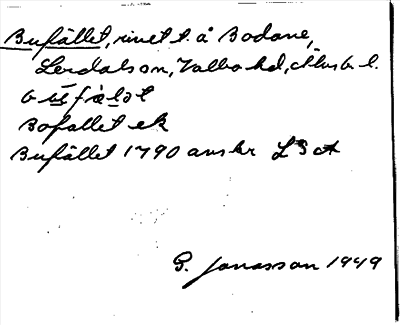 Bufället, rivet t. å Bodane,
Lerdals sn, Valbo hd, Älvsb. l.
Bofallet ek
Bufället 1790 anskr LSA
G. Jonasson 1949